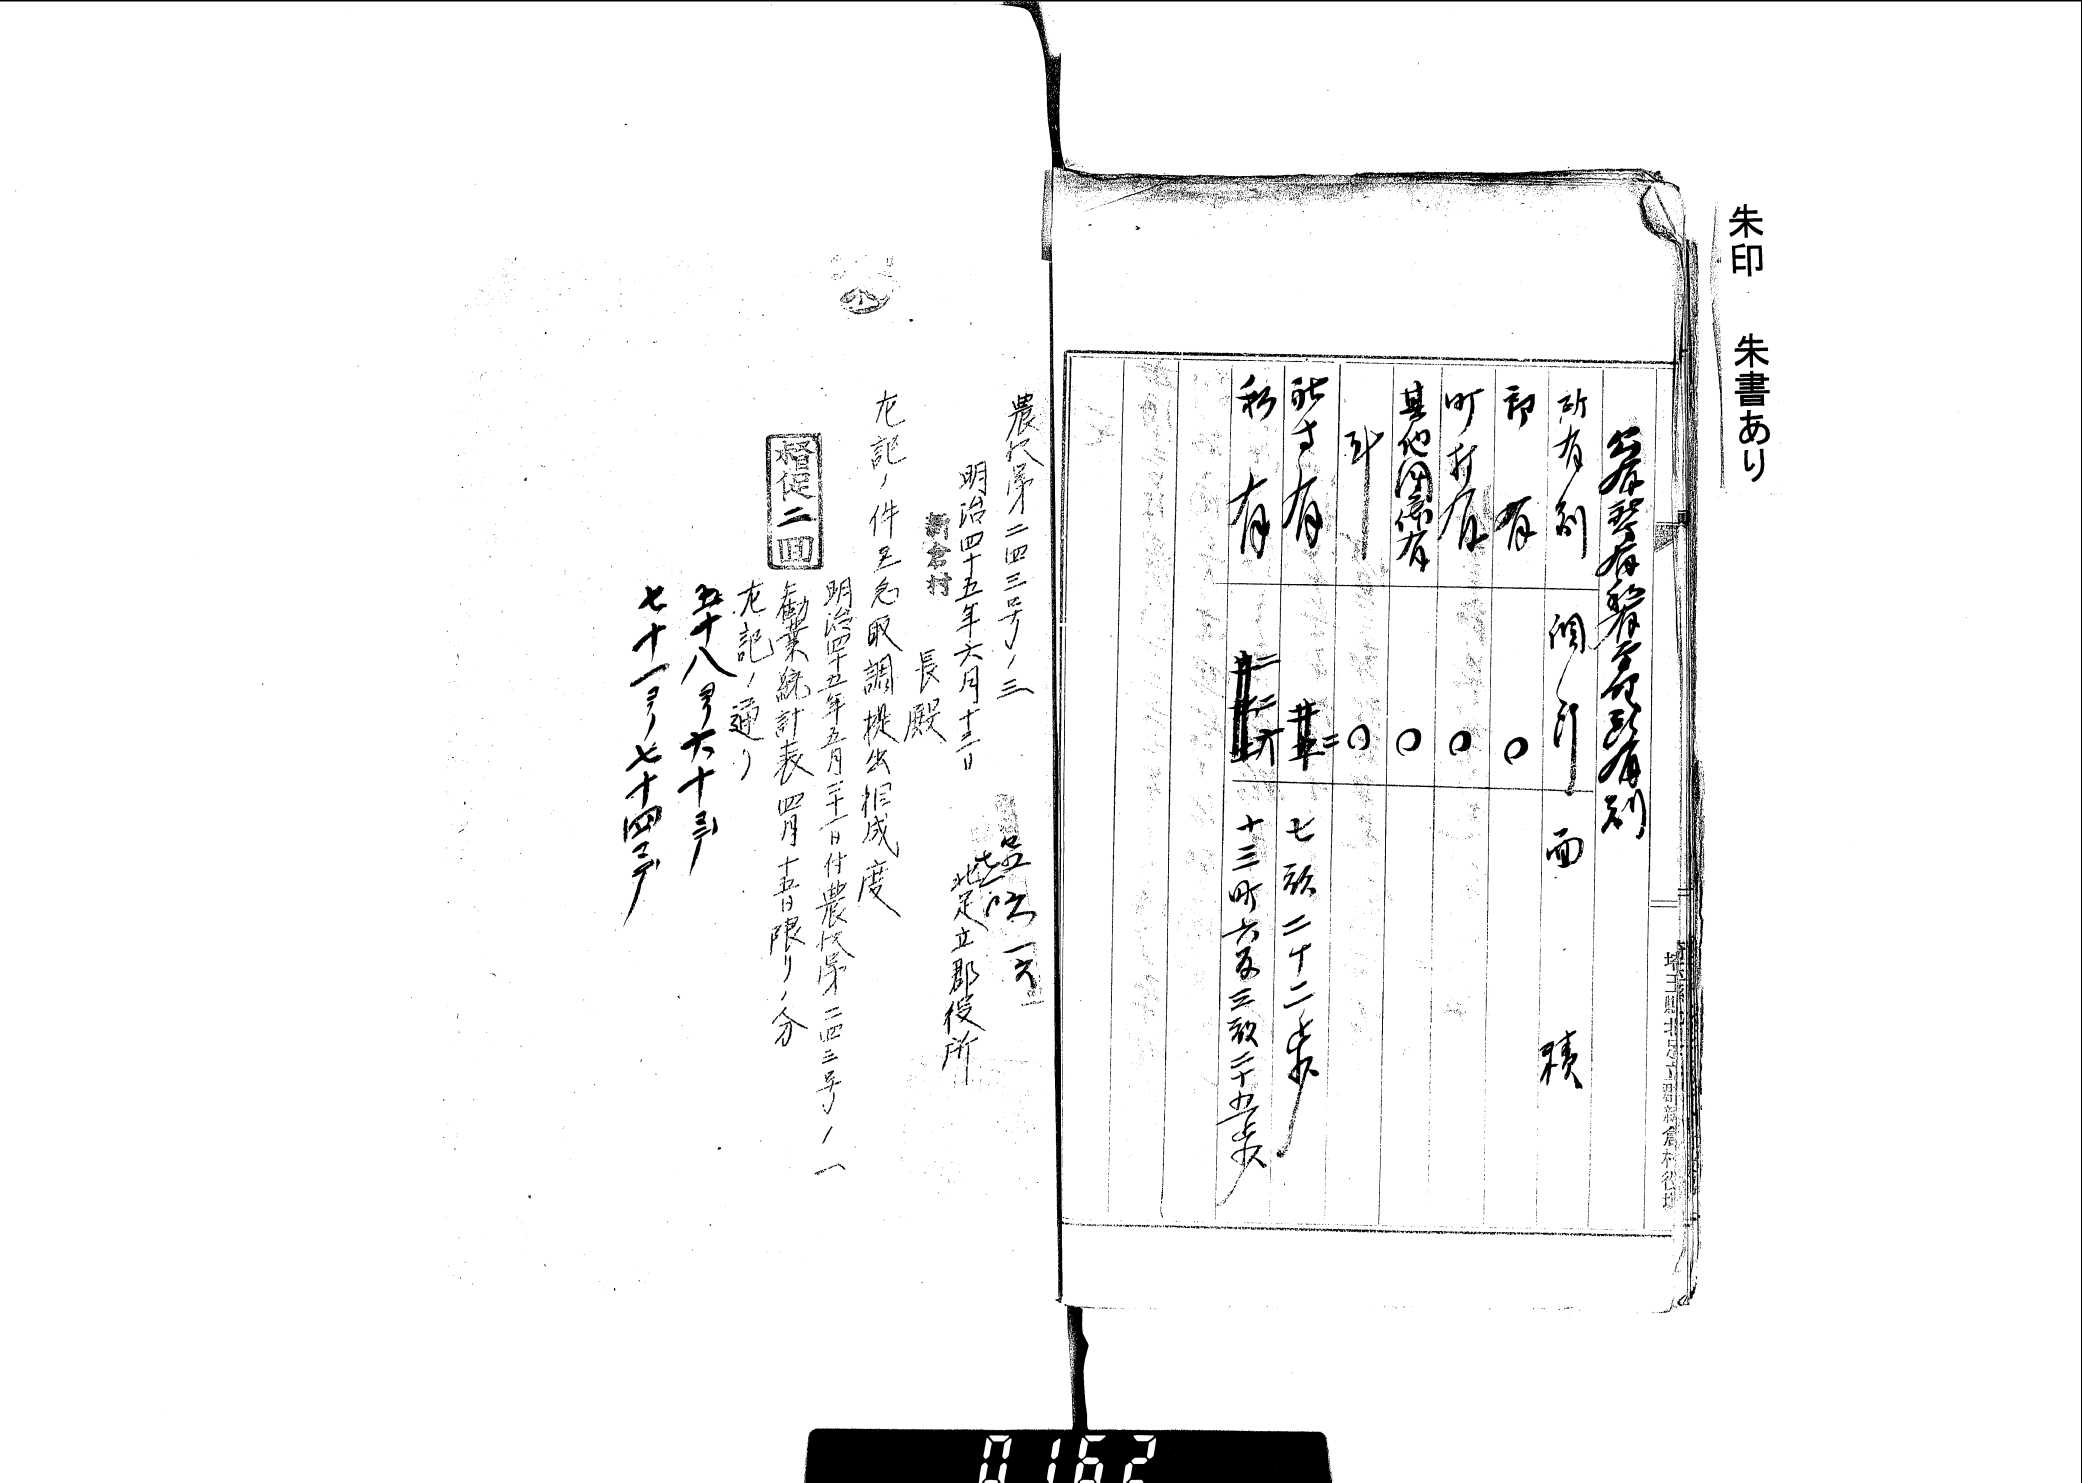 朱印　朱書あり
所有別　個所　面積
郡有　〇
町村有　〇
其他関係有　〇
計　〇
社寺有　七畝二十二歩
私有　十三町六反三畝二十五歩
埼玉縣北足立郡新倉村役場
農収第二四三号ノ三
明治四十五年六月十三日
北足立郡役所
新倉村長殿
左記ノ件至急取調提出相成度
明治四十五年五月三十一日付農収第二四三号ノ一
督促二回
勧業統計表四月十五日限リノ分
左記ノ通リ
五十八ヨリ六十マデ
七十一ヨリ七十四マデ
0162